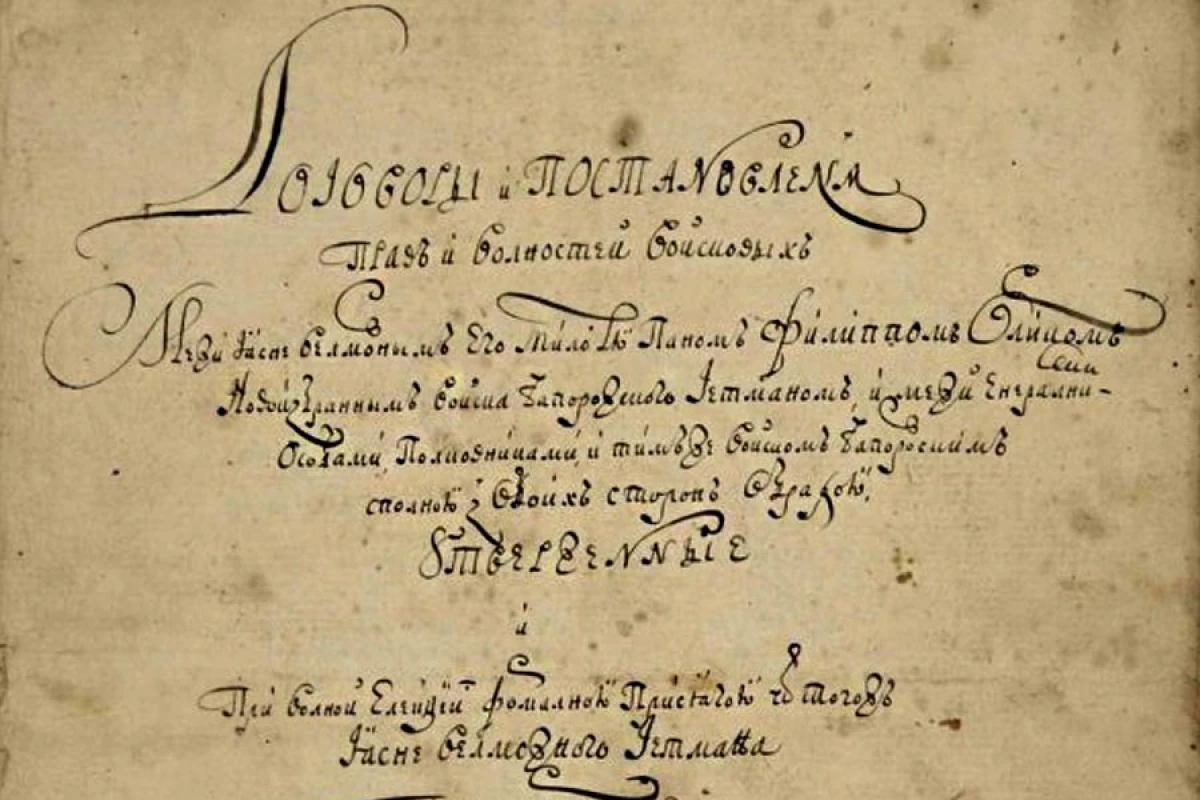 Договоры и Постановленѧ
Правъ и волностей войсковыхъ
Межи Ясне велможнымъ Его милостю Паномъ Филиппомъ Орликомъ
Новоизбраннымъ войска Запорожского Гетманомъ, и межи Енерални-
Особами, Полковниками, и тимъже войскомъ Запорожскимъ
сполною з обоихъ сторонъ обрадою,
Ꙋтвержеппые
и
При волной Елекцїи формалною Присягою ѿ тогожъ
Ясне велможного Гетмана